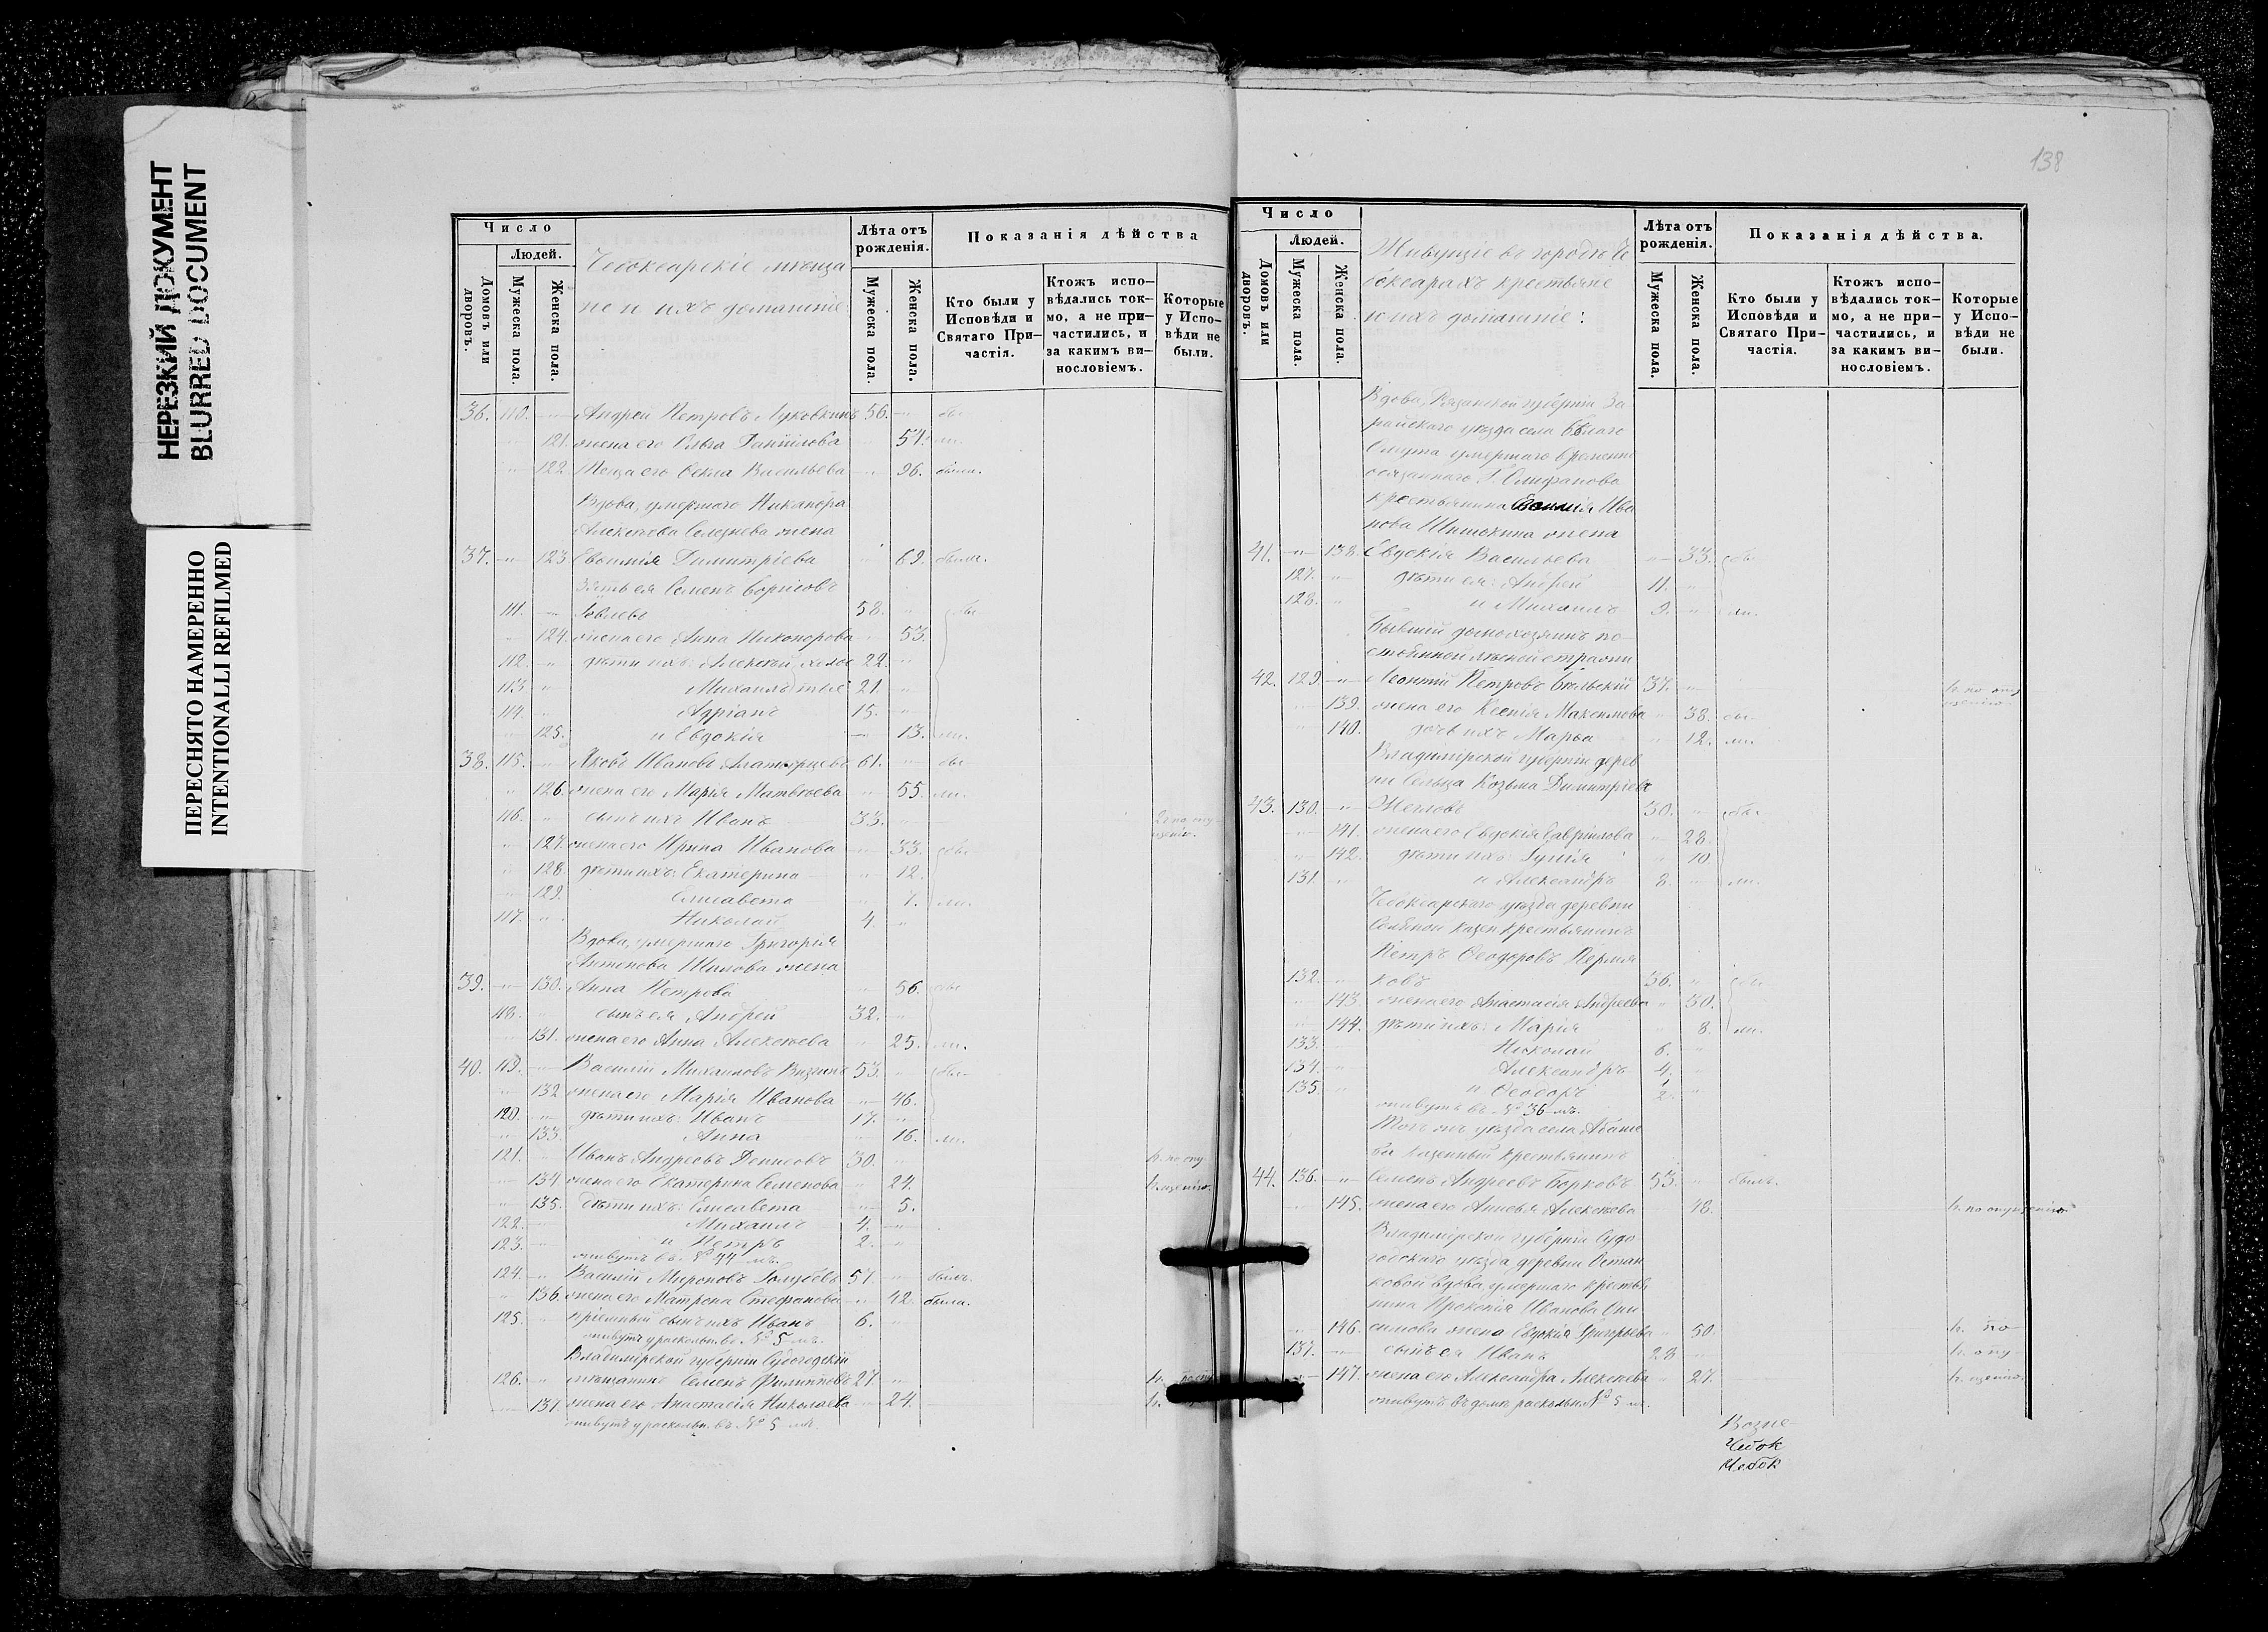 НЕРЕЗКИЙ ДОКУМЕНТ
BLURRED DOCUMENT
ПЕРЕСНЯТО НАМЕРЕННО
INTENTIONALLI REFILMED
Число
Людей.
Домовъ или дворовъ.
Мужеска пола.
Женска пола.
Чебоксарскіе мѣща
не и ихъ домашніе:
Лѣта отъ рожденія.
Мужеска пола.
Женска пола.
Показанія дѣйства
Кто были у Исповѣди и Святаго Причастія.
Ктожъ исповѣдались токмо, а не причастились, и за какимъ винословіемъ.
Которые у Исповѣди не были.
36. 110. Андрей Петровъ 56. бы
121. жена его Ольга Даніилова 54. ли.
122. Теща его Ѳекла Васильева 96. была.
Вдова, умершаго Никанора
Алексѣева Селезнева жена
37. 123. Евѳимія Димитріева 69. была.
Зять ея Семенъ Борисовъ
111. 58. бы
124. жена его Анна Никонорова 53.
112. дѣти ихъ: Алексѣй, холос 22.
113. Михаилъ тые 21.
114. Адріанъ 15.
125. и Евдокія 13. ли.
38. 115. Яковъ Ивановъ Алаторцевъ 61. бы
126. жена его Марія Матвѣева 55. ли.
116. сынъ ихъ Иванъ 33. по опу
щенію.
127. жена его Ирина Иванова 33. бы
128. дѣти ихъ: Екатерина 12.
129. Елисавета 7. ли.
117. Николай 4.
Вдова, умершаго Григорія
Антонова Шилова жена
39. 130. Анна Петрова 56. бы
118. сынъ ея Андрей 32.
131. жена его Анна Алексѣева 25. ли.
40. 119. Василій Михаиловъ 53. бы
132. жена его Марія Иванова 46.
120. дѣти ихъ: Иванъ 17.
133. Анна 16. ли.
121. Иванъ Андреевъ Денисовъ 30. н. по опу
134. жена его Екатерина Семенова 24. н. щенію.
135. дѣти ихъ: Елисавета 5.
122. Михаилъ 4.
123. и Петръ 2.
живутъ въ № 44 мъ.
124. Василій Мироновъ Голубевъ 57. былъ.
136. жена его Матрона Стефанова 42. была.
125. пріемный сынъ ихъ Иванъ 6.
живутъ у раскольн. въ № 5 мъ.
Владимірской губерніи Судогодскій
126. мѣщанинъ Семенъ Филипповъ 27. н.
137. жена его Анастасія Николаева 24. н.
живутъ у раскольн. въ № 5 мъ.
138
Число
Людей.
Домовъ или дворовъ.
Мужеска пола.
Женска пола.
Живущіе въ городѣ Че
боксарахъ крестьяне
и ихъ домашніе:
Лѣта отъ рожденія.
Мужеска пола.
Женска пола.
Показанія дѣйства.
Кто были у Исповѣди и Святаго Причастія.
Ктожъ исповѣдались токмо, а не причастились, и за какимъ винословіемъ.
Которые у Исповѣди не были.
Вдова, Рязанской губерніи За
райскаго уѣзда села Бѣлаго
Омута умершаго временно
обязаннаго Г. Олифанова
крестьянина Ива
нова Шишокина жена
41. 138. Евдокія Васильева 33. бы
127. дѣти ея: Андрей 11.
128. и Михаилъ 9. ли.
Бывшій домохозяинъ по
стоянной лѣсной стражи
42. 129. Леонтій Петровъ Бѣльскій 37. н. по опу
щенію.
139. жена его Ксенія Максимова 38. бы
140. дочь ихъ Марѳа 12. ли.
Владимірской губерніи дерев
ни Сельца Козьма Димитріевъ
43. 130. Жегловъ 30. бы
141. жена его Евдокія Гавріилова 28.
142. дѣти ихъ: Іулія 10
131. и Александръ 8. ли.
Чебоксарскаго уѣзда деревни
казен. крестьянинъ
Петръ Ѳеодоровъ Пермя
132. ковъ 36. бы
143. жена его Анастасія Андреева 30.
144. дѣти ихъ: Марія 8. ли.
133. Николай 6.
134. Александръ 4.
135. и Ѳеодоръ 1/2.
живутъ въ № 36 мъ.
Тогожъ уѣзда села Абаше
ва казенный крестьянинъ
44. 136. Семенъ Андреевъ Борковъ 53. былъ.
145. жена его Анисья Алексѣева 48. н. по опущенію.
Владимірской губерніи Судо
годскаго уѣзда деревни Остан
ковой вдова, умершаго крестья
нина Прокопія Иванова
симова жена Евдокія Григорьева 146. 50. н. по
137. сынъ ея Иванъ 28 н. опу
147. жена его Александра Алексѣева 27. н. щенію.
живутъ въ домѣ раскольн. № 5 мъ.
Возне-
Чебок
Чебок